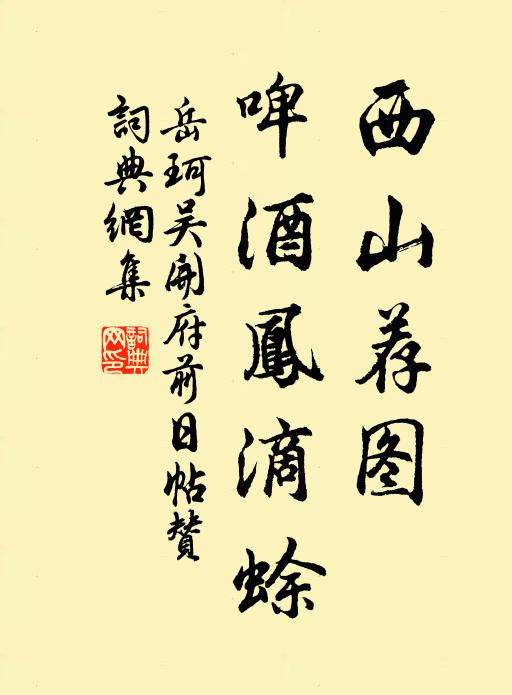 西山荐图
啤酒鳳滴蜍
岳珂吴開府前日帖贊
詞典網集
詞典
网印